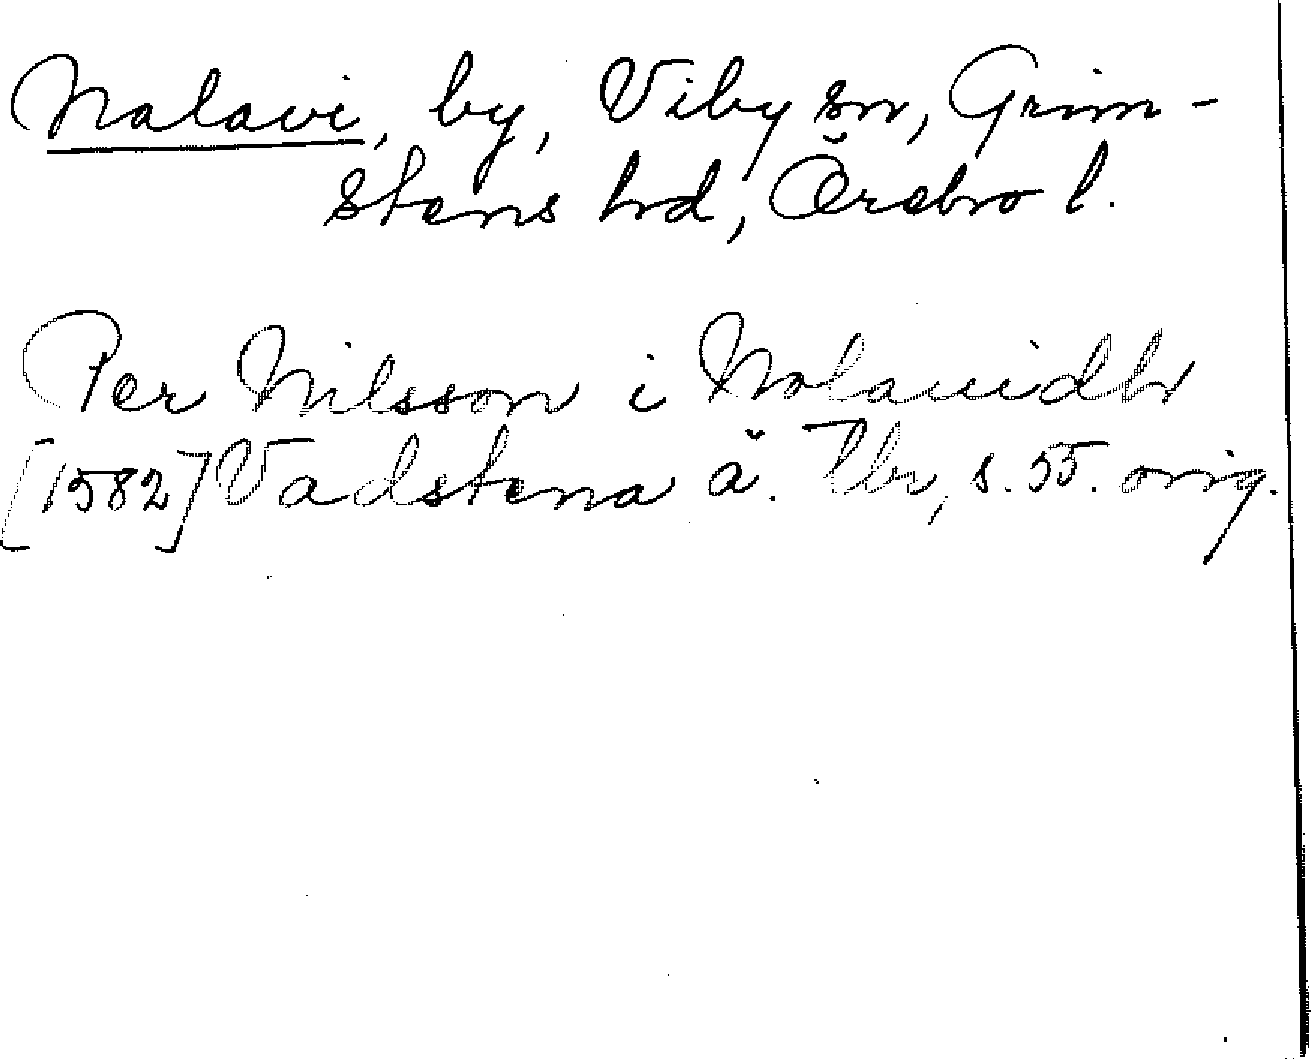 Nalavi, by, Viby sn, Grim-
stens hd, Örebro l.
Per Nilsson i Nolauidhr
[1582] Vadstena ä. Tbr, s. 55. orig.